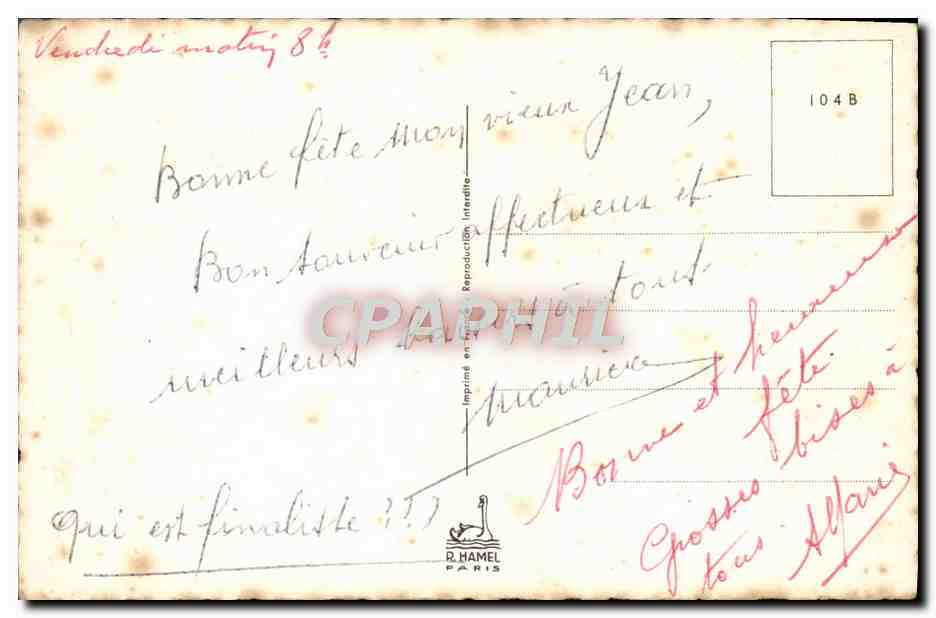 Vendredi matin 8h
104B
Bonne fête mon vieux Jean,
Bon souvenir affectueux et
meilleurs à tout
Maurice
Imprimé en France Reproduction Interdite
CPAPHIL
Bonne et heureuse
fête.
Grosses bises à
tous
Qui est finaliste ???
R. HAMEL
PARIS